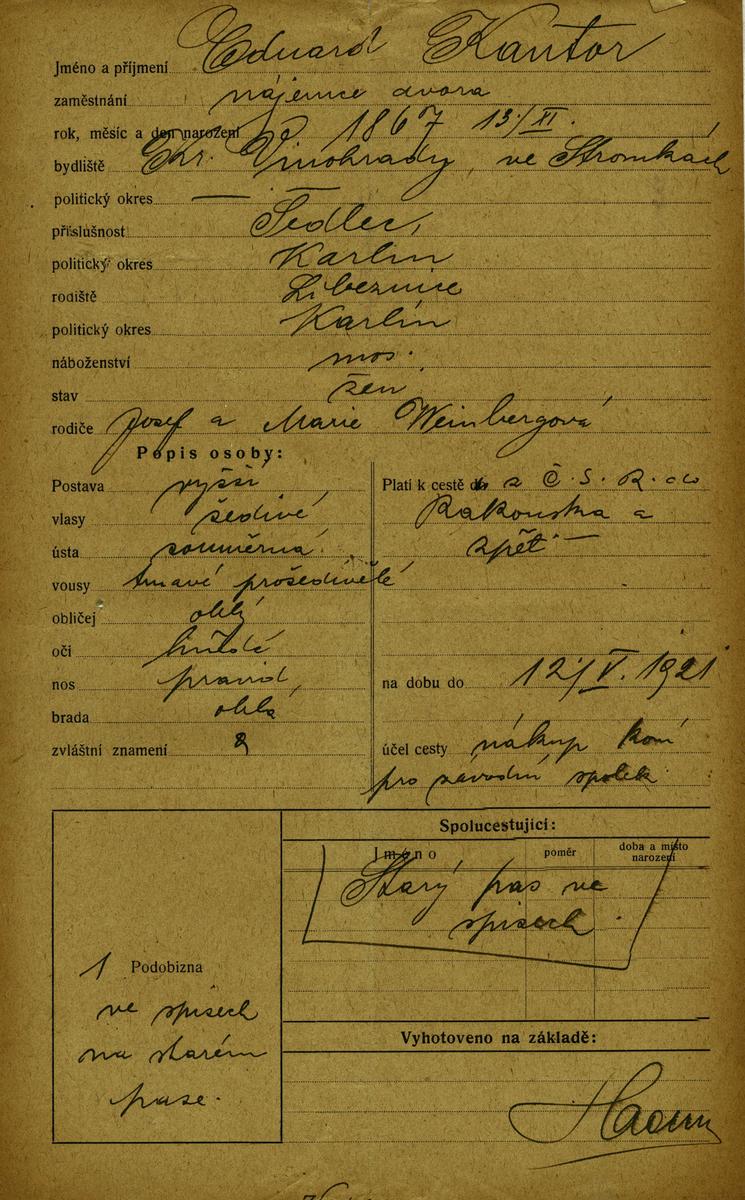 Jméno a příjmení Eduard Kantor
zaměstnání nájemce dvora
rok, měsíc a den narození 1867 13./XI.
bydliště Kr. Vinohrady, ve Stromkách
politický okres —
příslušnost Sedlec,
politický okres Karlín
rodiště Libeznice
politický okres Karlín
náboženství mos.
stav žen.
rodiče Josef a Marie Weinbergová
Popis osoby:
Postava vyšší
vlasy šedivé
ústa souměrná.
vousy tmavé prošedivělé
obličej oblý
oči hnědé
nos pravid.
brada oblá
zvláštní znamení
Platí k cestě do z Č. S. R. do
Rakouska a
zpět. —
na dobu do 12./V. 1921
účel cesty nákup koní
pro závodní spolek
Spolucestující:
Jméno poměr doba a místo narození
Starý pas ve
spisech.
1 Podobizna
ve spisech
na starém
pase.
Vyhotoveno na základě: